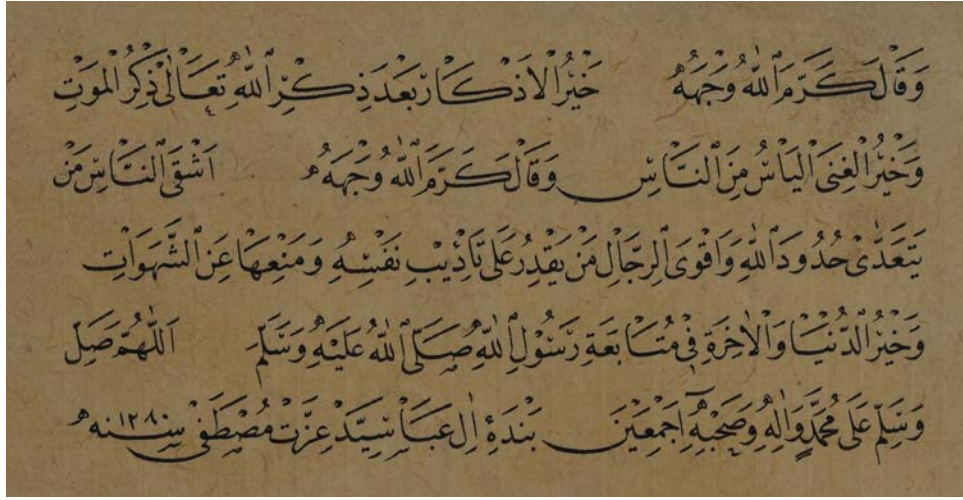 وَقَالَ كَرَّمَ اللّٰهُ وَجْهَهُ خَيْرُ الْاَذْكَارِ بَعْدَ ذِكْرِ اللّٰهِ تَعَالٰى ذِكْرُ الْمَوْتِ
وَخَيْرُ الْغِنَى الْيَاْسُ مِنَ النَّاسِ وَقَالَ كَرَّمَ اللّٰهُ وَجْهَهُ اَشْقَى النَّاسِ مَنْ
يَتَعَدّٰى حُدُودَ اللّٰهِ وَاَقْوَى الرِّجَالِ مَنْ يَقْدِرُ عَلٰى تَاْدِيْبِ نَفْسِهِ وَمَنْعِهَا عَنِ الشَّهَوَاتِ
وَخَيْرُ الدُّنْيَا وَالْاٰخِرَةِ فِي مُتَابَعَةِ رَسُوْلِ اللّٰهِ صَلَّى اللّٰهُ عَلَيْهِ وَسَلَّمَ اَللّٰهُمَّ صَلِّ
وَسَلِّمْ عَلٰى مُحَمَّدٍ وَاٰلِهِ وَصَحْبِهِ اَجْمَعِيْنَ بَنْدَهٔ اٰلِ عَبَا سَيِّدْ عِزَّتْ مُصْطَفٰى سنه ١٢٨٠